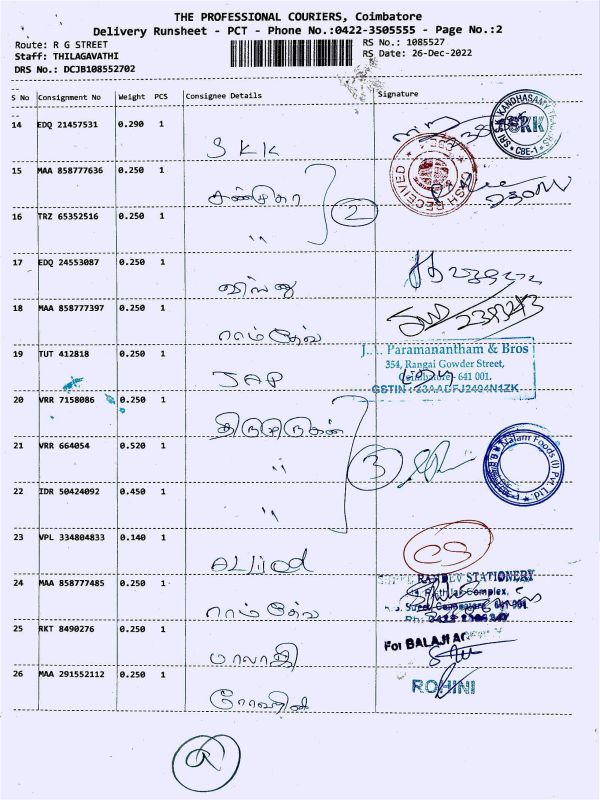 THE PROFESSIONAL COURIERS, Coimbatore
Delivery Runsheet - PCT - Phone No.:0422-3505555 - Page No.:2
Route: R G STREET RS No.: 1085527
Staff: THILAGAVATHI RS Date: 26-Dec-2022
DRS No.: DCJB108552702
S No Consignment No Weight PCS Consignee Details Signature
14 EDQ 21457531 0.290 1
SKK
SKK
CBE-1
15 MAA 858777636 0.250 1
CASH RECEIVED
2
16 TRZ 65352516 0.250 1
"
17 EDQ 24553087 0.250 1
விஷ்ணு
18 MAA 858777397 0.250 1
ராம்தேவ்
19 TUT 412818 0.250 1
JAP
J... Paramanantham & Bros
354, Rangai Gowder Street,
Coimbatore - 641 001.
GSTIN : 33AADFJ2404N1ZK
20 VRR 7158086 0.250 1
திருமுருகன்
21 VRR 664054 0.520 1
"
3
Nalam Foods (I) Pvt. Ltd
22 IDR 50424092 0.450 1
"
23 VPL 334804833 0.140 1
Allied
24 MAA 858777485 0.250 1
ராம்தேவ்
RAMDEV STATIONERY
Complex,
25 RKT 8490276 0.250 1
பாலாஜி
For BALAJI
26 MAA 291552112 0.250 1
ரோஹினி
ROHINI